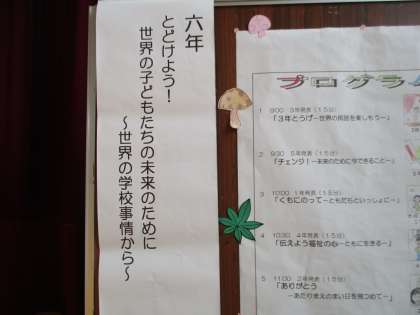 六年
とどけよう！
世界の子どもたちの未来のために
～世界の学校事情から～
プログラム
1 9:00 3年発表（15分）
「3年とうげ－世界の民話を楽しもう－」
2 9:30 5年発表（15分）
「チェンジ！－未来のために今できること－」
3 10:00 1年発表（15分）
「くもにのって－ともだちといっしょに－」
4 10:30 4年発表（15分）
「伝えよう福祉の心－ともに生きる－」
5 11:00 2年発表（15分）
「ありがとう